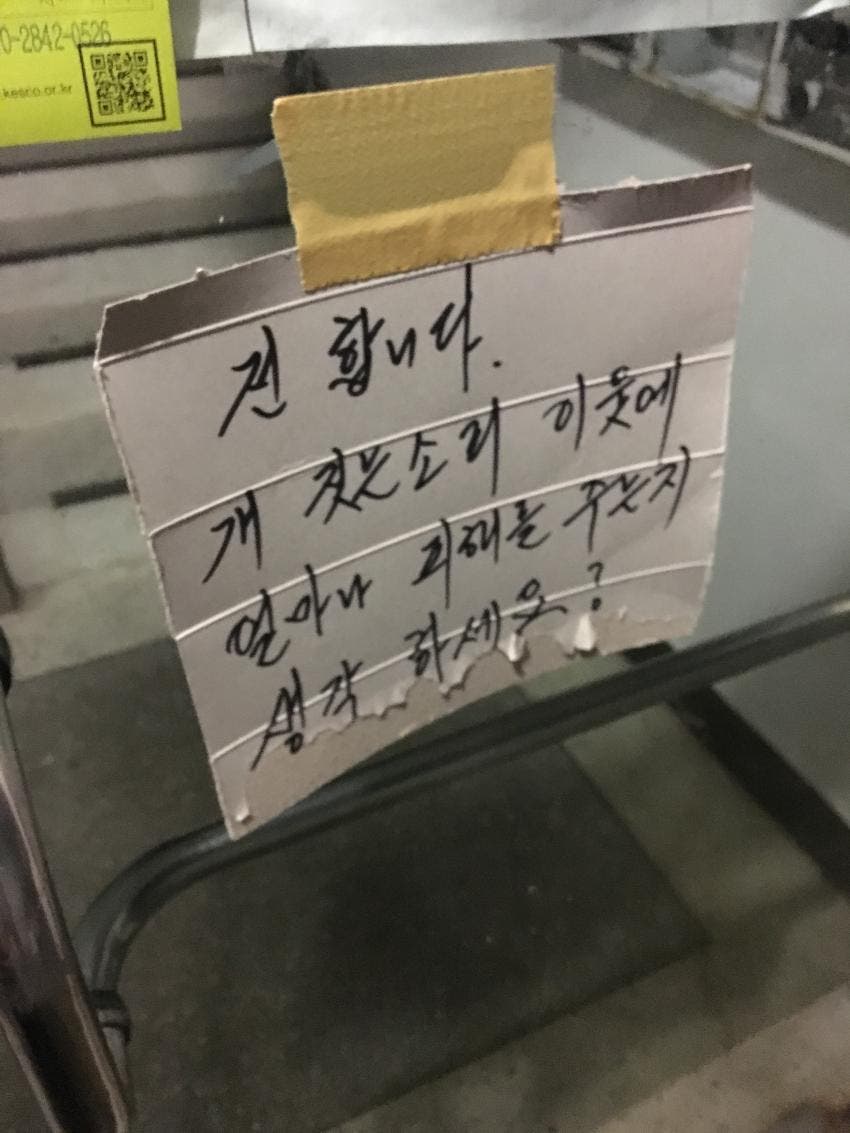 0-2842-0526
kesco.or.kr
전 합니다.
개 짖는소리 이웃에
얼마나 피해를 주는지
생각 하세요?